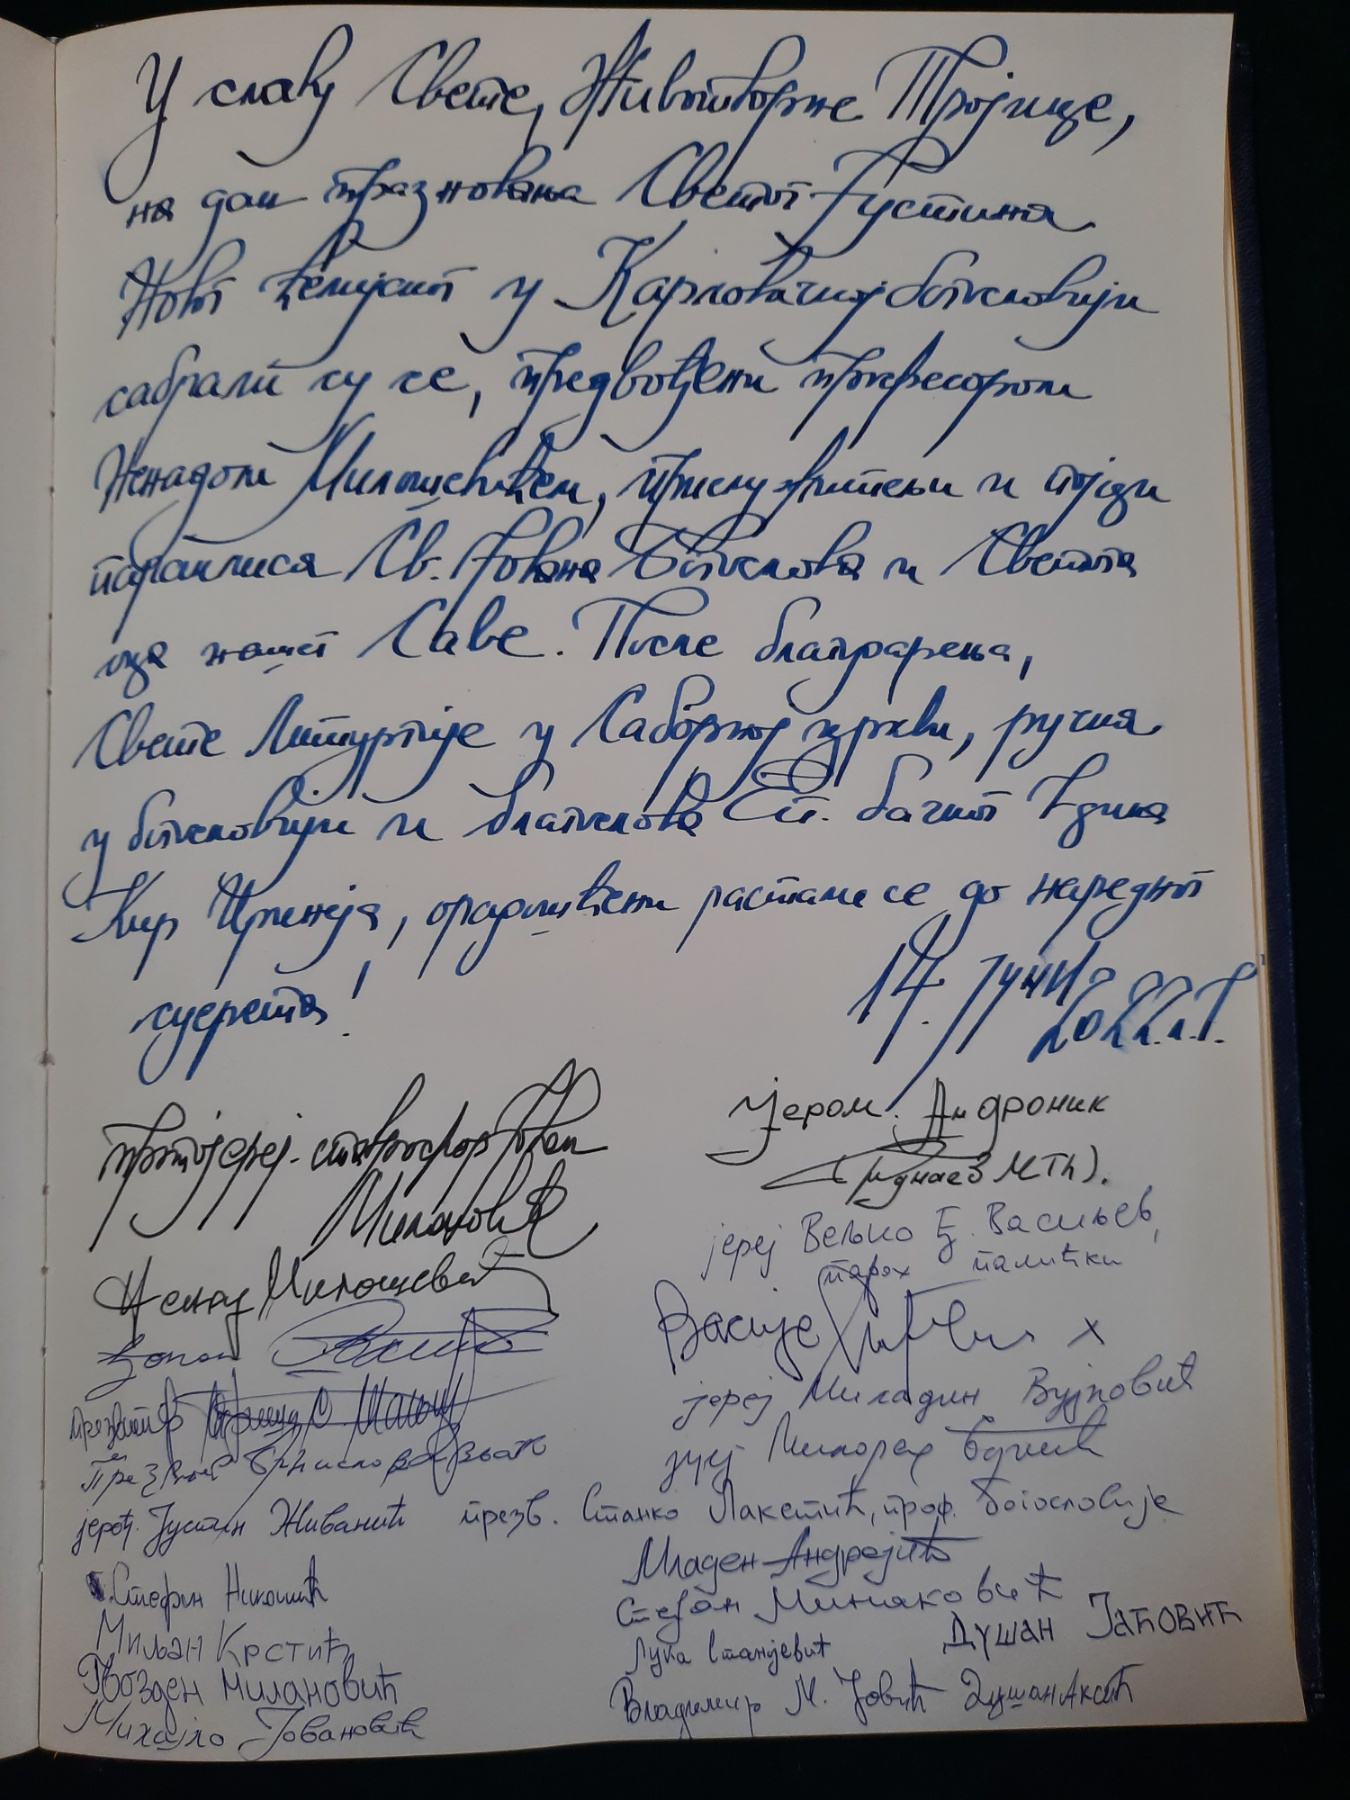 У славу Свете, Животворне Тројице,
на дан празновања Светог Јустина
Новог Ћелијског у Карловачкој богословији
сабрали су се, предвођени професором
Ненадом Милошевићем, прислужитељи и појци
параклиса Св. Јована Богослова и Светога
оца нашег Саве. После благодарења,
Свете Литургије у Саборној цркви, ручка
у богословији и благослова Еп. бачког Г дина
Кир Иринеја, одушевљени растали се до наредног
сусрета!
14. јуни
2022. л. Г.
протојереј-ставрофор Јован
Милановић
Јером. Андроник
јереј Вељко Ђ. Васиљев,
парох палићки
Ненад Милошевић
Василије
јереј Миладин Вујовић
презвитер
јереј Милорад
Презвитер
јерођ. Јустин Живанић презв. Станко Лакетић, проф. богословије
Младен Андрејић
Стефан Николић
Стефан Минаковић
Миљан Крстић
Лука Станојевић Душан Јаћовић
Гвозден Милановић
Владимир М. Јовић Душан Аксић
Михајло Јовановић